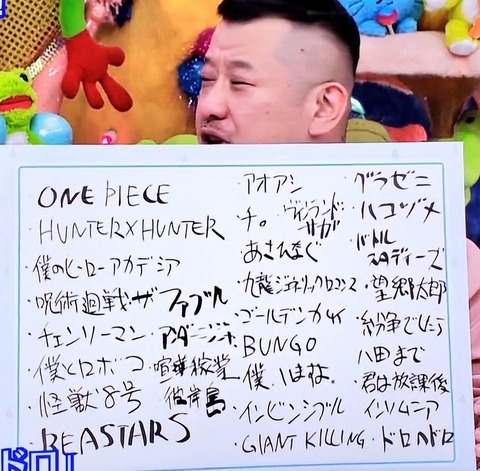 ONE PIECE
HUNTER×HUNTER
・僕のヒーローアカデミア
・呪術廻戦・ザ ファブル
・チェンソーマン・アンダーニンジャ
・僕とロボコ・喧嘩稼業
・怪獣8号 彼岸島
・BEASTARS
・アオアシ
・チ。 ヴィンランド
サガ
あさひなぐ
・九龍ジェネリックロマンス
・ゴールデンカムイ
・BUNGO
・インビンシブル
・GIANT KILLING
・グラゼニ
・ハコヅメ
・バトル
スタディーズ
・望郷太郎
・紛争でしたら
八田まで
・君は放課後
インソムニア
・ドロヘドロ